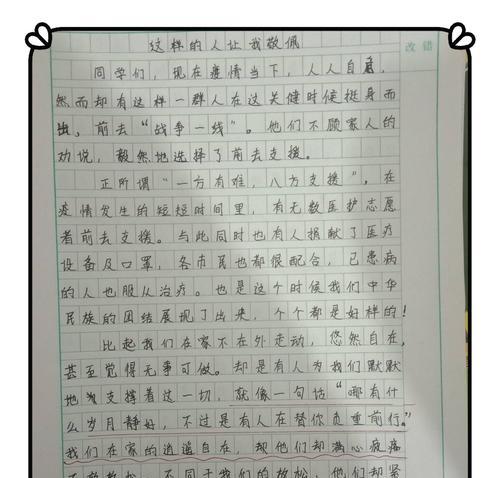 这样的人让我敬佩
改错
同学们，现在疫情当下，人人自危，
然而却有这样一群人在这关健时候挺身而
出，前去“战争一线”。他们不顾家人的
劝说，毅然地选择了前去支援。
正所谓“一方有难，八方支援”，在
疫情发生的短短时间里，有无数医护志愿
者前去支援。与此同时也有人捐献了医疗
设备及口罩，各市民也都很配合，已患病
的人也服从治疗。也是这个时候我们中华
民族的团结展现了出来，个个都是好样的！
比起我们在家不在外走动，悠然自在，
甚至觉得无事可做。却是有人为我们默默
地支撑着这一切，就像一句话“哪有什
么岁月静好，不过是有人在替你负重前行。”
我们在家的逍遥自在，却他们却满心疲痛
不敢放松，不同于我们的放松，他们却紧